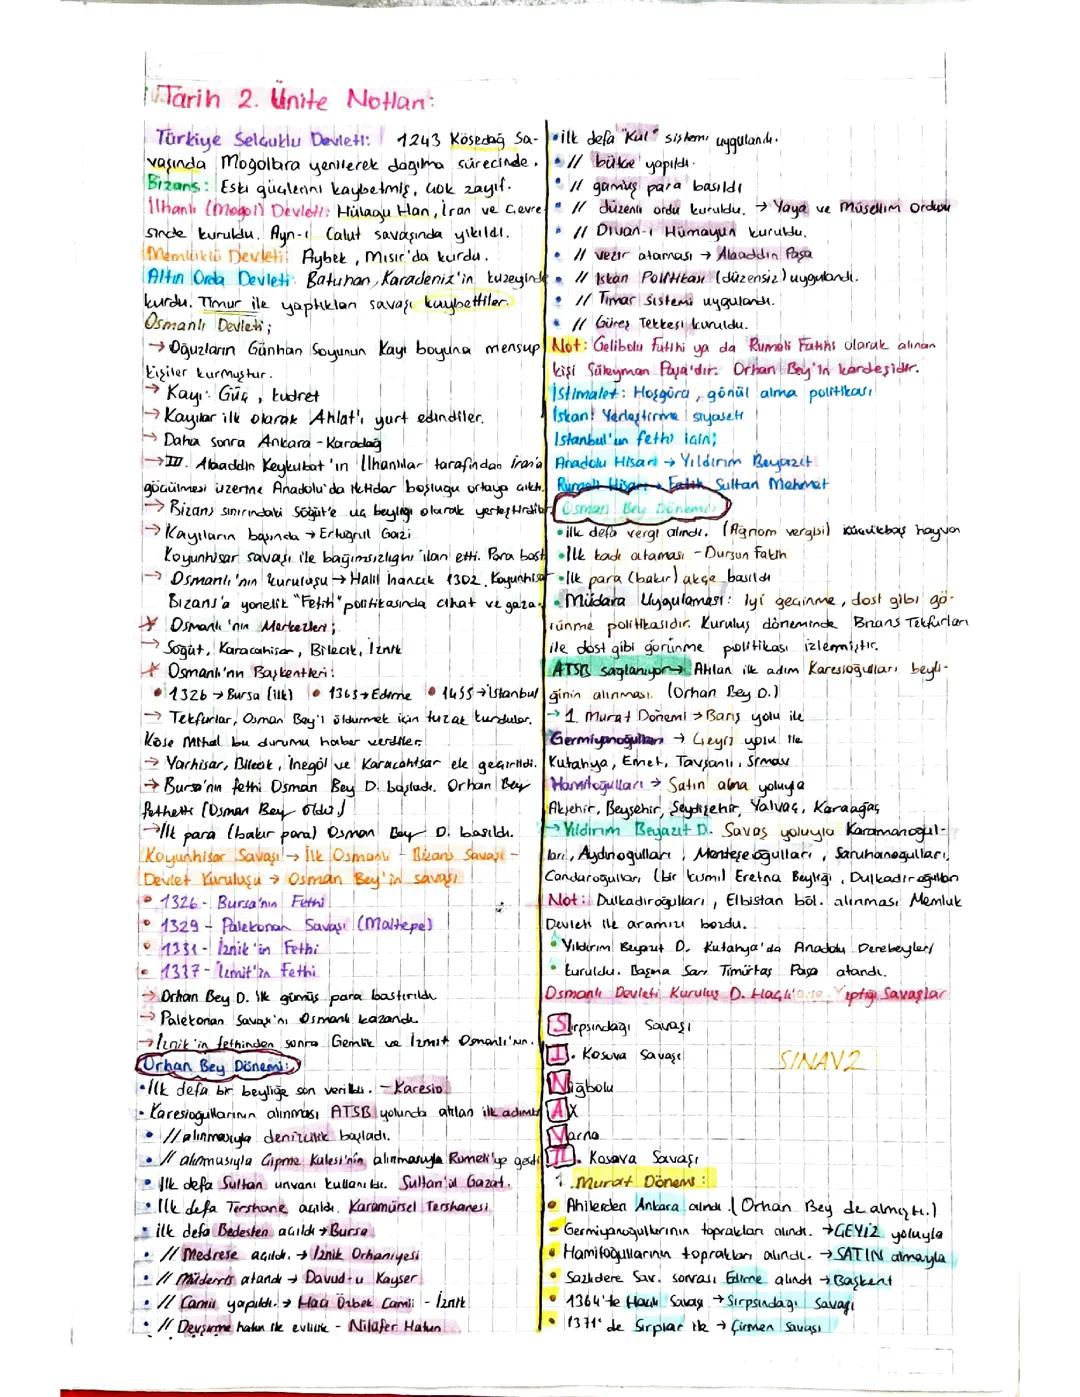 Tarih 2. Ünite Notları:
Türkiye Selçuklu Devleti: 1243 Kösedağ Sa-
vaşında Moğollara yenilerek dağılma sürecinde.
Bizans: Eski güçlerini kaybetmiş, çok zayıf.
İlhanlı (Moğol) Devleti: Hülagu Han, İran ve Çevre
sinde kuruldu. Ayn-ı Calut savaşında yıkıldı.
Memlüklü Devleti: Aybek, Mısır'da kurdu.
Altın Orda Devleti: Batuhan, Karadeniz'in kuzeyinde
kurdu. Timur ile yaptıkları savaşı kaybettiler.
Osmanlı Devleti;
→ Oğuzların Günhan Soyunun Kayı boyuna mensup
kişiler kurmuştur.
→ Kayı: Güç, kudret
→ Kayılar ilk olarak Ahlat'ı yurt edindiler.
→ Daha sonra Ankara - Karadağ
→ III. Alaaddin Keykubat'ın İlhanlılar tarafından İran'a
göçülmesi üzerine Anadolu'da iktidar boşluğu ortaya çıktı.
→ Bizans sınırındaki Söğüt'e uç beyliği olarak yerleştirdiler
→ Kayıların başında → Ertuğrul Gazi
Koyunhisar savaşı ile bağımsızlığını ilan etti. Para bastı
→ Osmanlı'nın kuruluşu → Halil İnancık 1302. Koyunhisar
Bizans'a yönelik "Fetih" politikasında cihat ve gaza.
* Osmanlı'nın Merkezleri;
→ Söğüt, Karacahisar, Bilecik, İznik
* Osmanlı'nın Başkentleri:
• 1326 → Bursa (ilk) • 1363 → Edirne • 1453 → İstanbul
→ Tekfurlar, Osman Bey'i öldürmek için tuzak kurdular.
Köse Mihal bu durumu haber verdiler.
→ Yarhisar, Bilecik, İnegöl ve Karacahisar ele geçirildi.
→ Bursa'nın fethi Osman Bey D. başladı. Orhan Bey
fethetti (Osman Bey öldü.)
→ İlk para (bakır para) Osman Bey D. basıldı.
Koyunhisar Savaşı → İlk Osmanlı - Bizans Savaşı -
Devlet Kuruluşu → Osman Bey'in savaşı
• 1326 - Bursa'nın Fethi
• 1329 - Palekonan Savaşı (Maltepe)
• 1331 - İznik'in Fethi
• 1337 - İzmit'in Fethi
→ Orhan Bey D. ilk gümüş para bastırıldı
→ Palekonan Savaşı'nı Osmanlı kazandı.
→ İznik'in fethinden sonra Gemlik ve İzmit Osmanlı'nın.
Orhan Bey Dönemi:
• İlk defa bir beyliğe son verildi. - Karesio
• Karesioğullarının alınması ATSB yolunda atılan ilk adımdı
• // alınmasıyla denizcilik başladı.
• // alınmasıyla Çipme Kalesi'nin alınmasıyla Rumeli'ye geçti
• İlk defa Sultan unvanı kullanıldı. Sultan'ül Gazat.
• İlk defa Tershane açıldı. Karamürsel Tershanesi
• ilk defa Bedesten açıldı → Bursa
• // Medrese açıldı. → İznik Orhaniyesi
• // Müderris atandı → Davud-u Kayser
• // Camii yapıldı. → Hacı Özbek Camii - İznik
• // Devşirme hatun ile evlilik - Nilüfer Hatun
• ilk defa "Kul" sistemi uygulandı.
• // bütçe yapıldı.
• // gümüş para basıldı
• // düzenli ordu kuruldu. → Yaya ve Müsellim Ordusu
• // Divan-ı Hümayun kuruldu.
• // vezir ataması → Alaaddin Paşa
• // İskan Politikası (düzensiz) uygulandı.
• // Tımar sistemi uygulandı.
• // Güreş Tekkesi kuruldu.
Not: Gelibolu Fatihi ya da Rumeli Fatihi olarak alınan
kişi Süleyman Paşa'dır. Orhan Bey'in kardeşidir.
İstimalet: Hoşgörü, gönül alma politikası
İskan: Yerleştirme siyaseti
İstanbul'un fethi için;
Anadolu Hisarı → Yıldırım Beyazıt
Rumeli Hisarı → Fatih Sultan Mehmet
Osman Bey Dönemi:
• ilk defa vergi alındı. (Ağnom vergisi) küçükbaş hayvan
• İlk kadı ataması - Dursun Fakih
• İlk para (bakır) akçe basıldı
• Müdara Uygulaması: İyi geçinme, dost gibi gö-
rünme politikasıdır. Kuruluş döneminde Bizans Tekfurları
ile dost gibi görünme politikası izlemiştir.
ATSB sağlanıyor → Atılan ilk adım Karesioğulları beyli-
ğinin alınması. (Orhan Bey D.)
→ 1. Murat Dönemi → Barış yolu ile
Germiyanoğulları → Çeyiz yolu ile
Kütahya, Emet, Tavşanlı, Simav
Hamitoğulları → Satın alma yoluyla
Akşehir, Beyşehir, Seydişehir, Yalvaç, Karaağaç
→ Yıldırım Beyazıt D. Savaş yoluyla Karamanoğul-
ları, Aydınoğulları, Menteşeoğulları, Saruhanoğulları,
Candaroğulları (bir kısmı) Eretna Beyliği, Dulkadiroğulları
Not: Dulkadiroğulları, Elbistan böl. alınması Memluk
Devleti ile aramızı bozdu.
• Yıldırım Beyazıt D. Kütahya'da Anadolu Derebeyleri
• kuruldu. Başına Sarı Timürtaş Paşa atandı.
Osmanlı Devleti Kuruluş D. Haçlılarla Yaptığı Savaşlar
Sırpsındağı Savaşı
I. Kosova Savaşı
SINAV2
Niğbolu
AX
Varna
II. Kosova Savaşı
1. Murat Dönemi:
• Ahilerden Ankara alındı. (Orhan Bey de almıştı.)
• Germiyanoğullarının toprakları alındı. → ÇEYİZ yoluyla
• Hamitoğullarının toprakları alındı. → SATIN almayla
• Sazlıdere Sav. sonrası Edirne alındı → Başkent
• 1364'te Haçlı Savaşı → Sırpsındağı Savaşı
• 1371'de Sırplar ile → Çirmen savaşı